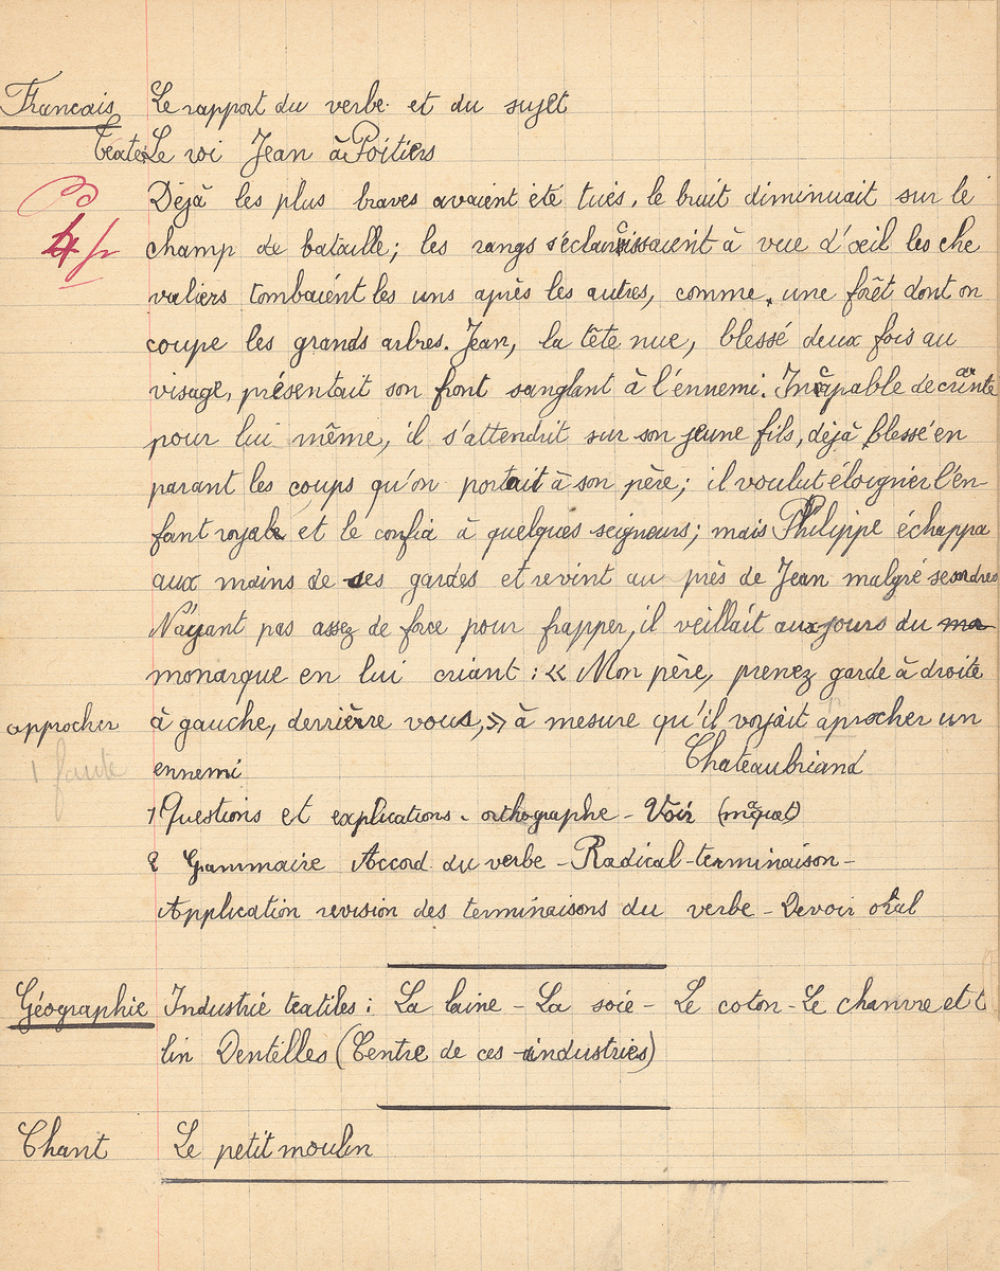 Francais Le rapport du verbe et du sujet
texte Le roi Jean à Poitiers
Déjà les plus braves avaient été tués, le bruit diminuait sur le
champ de bataille; les rangs s'éclaircissaient à vue d'œil les che
valiers tombaient les uns après les autres, comme une forêt dont on
coupe les grands arbres. Jean, la tête nue, blessé deux fois au
visage, présentait son front sanglant à l'ennemi. Incapable de crainte
pour lui même, il s'attendrit sur son jeune fils, déjà blessé en
parant les coups qu'on portait à son père; il voulut éloignier l'en-
fant royale et le confia à quelques seigneurs; mais Philippe échappa
aux mains de ses gardes et revint au près de Jean malgré ses ordres
N'ayant pas assez de force pour frapper, il veillait aux jours du ma
monarque en lui criant : « Mon père, prenez garde à droite
approcher à gauche, derrière vous, » à mesure qu'il voyait aprocher un
1 faute ennemi Chateaubriand
1 Questions et explications. orthographe - Voir
2 Grammaire Accord du verbe - Radical - terminaison -
Application revision des terminaisons du verbe - Devoir oral
Géographie Industrie textiles : La laine - La soie - Le coton - Le chanvre et
lin Dentelles (Centre de ces industries)
Chant Le petit moulin